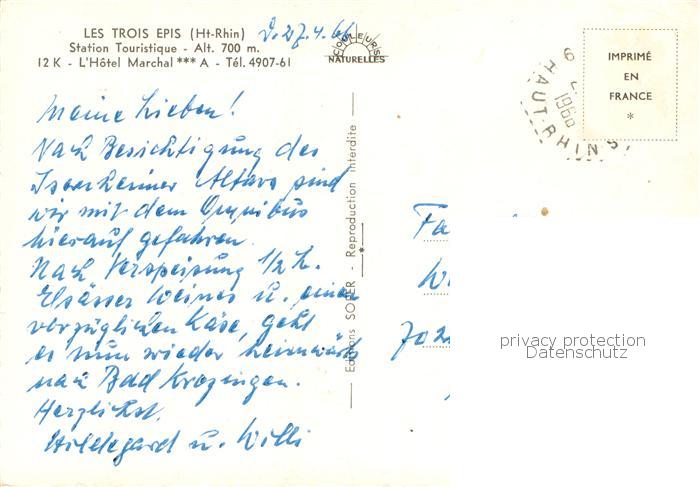 LES TROIS EPIS (Ht-Rhin)
Station Touristique - Alt. 700 m.
12 K - L'Hôtel Marchal *** A - Tél. 4907-61
D. 27.4.66
COULEURS
NATURELLES
Meine Lieben!
Nach Besichtigung des
Isenheimer Altars sind
wir mit dem Omnibus
hierauf gefahren.
Nach Verspeisung 1/2 L.
Elsässer Weines u. einen
vorzüglichen Käse, geht
es nun wieder heimwärts
nach Bad Krozingen.
Herzlichst
Hildegard u. Willi
Editions SOFER - Reproduction interdite
IMPRIMÉ
EN
FRANCE
*
HAUT-RHIN
Fa
W
702
privacy protection
Datenschutz